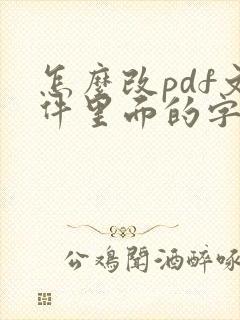 怎麼改pdf文
件里面的字
公鸡闻酒醉啄